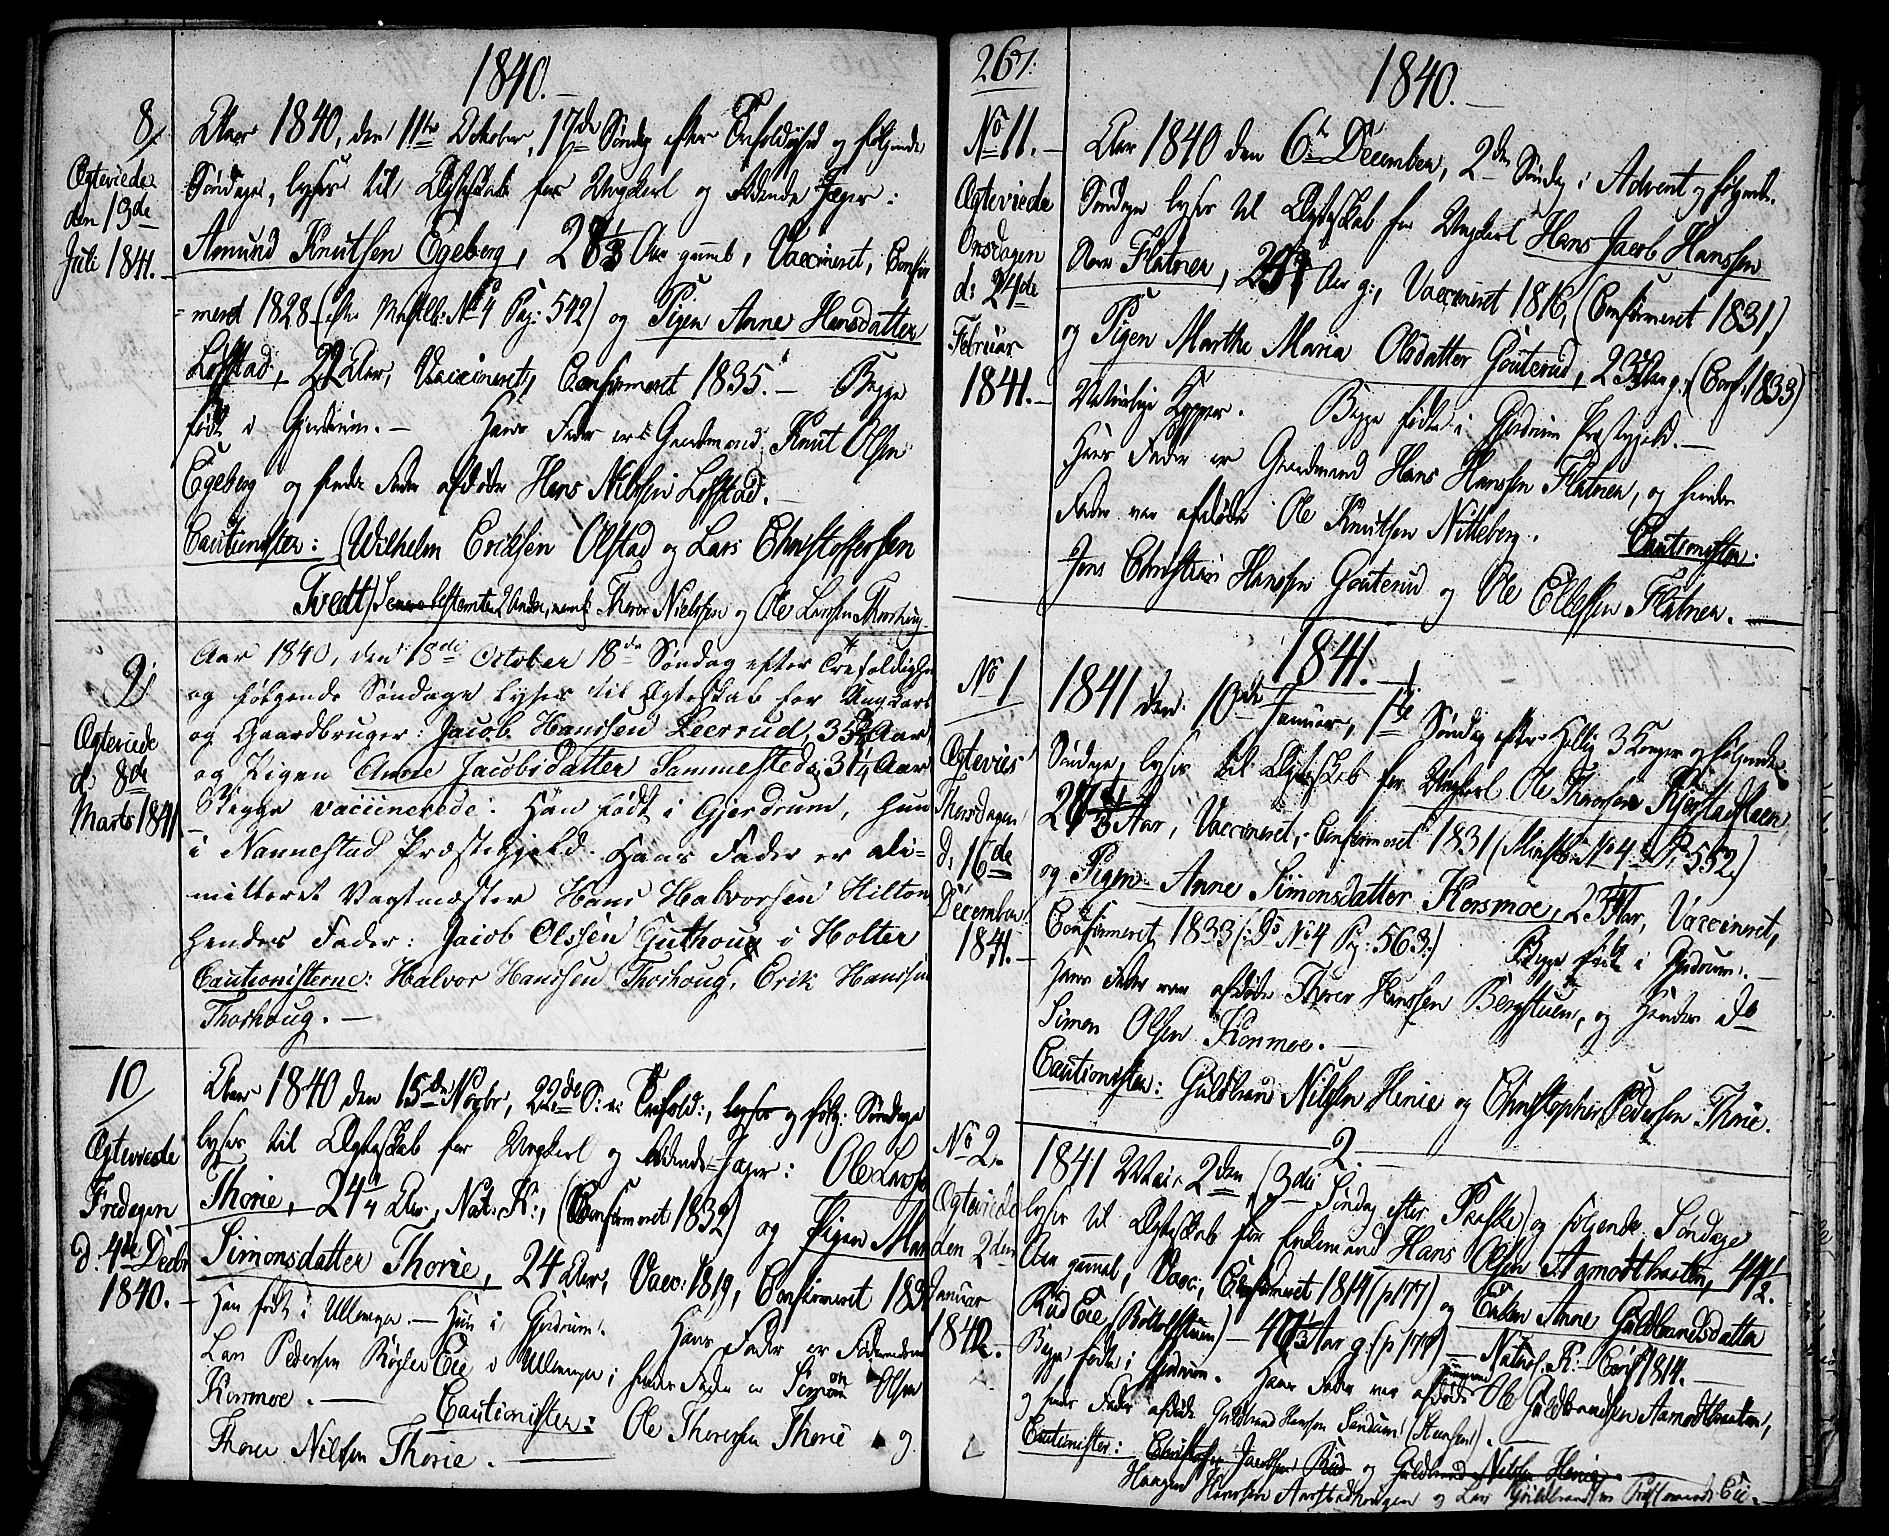 1840.
8/
Ægteviede
den 19de
Juli 1841.
Aar 1840, den 11te October, 17de Søndag efter Trefoldighed og følgende
Søndage, lyses til Ægteskab for Ungkarl og Fødende Jæger:
Amund Knutsen Egeberg, 28 1/3 Aar gammel, Vaccineret, Confir
=meret 1828 (efter No 4 Pag: 542) og Pigen Anne Hansdatter
Løfstad, 22 Aar, Vaccineret, Confirmeret 1835. Begge
født i Gjerdrum. Hans Fader er Gaardmand Knut Olsen
Egeberg og hendes Fader afdøde Hans Nilssen Løfstad.
Cautionister: (Wilhelm Eriksen Olstad og Lars Christoffersen
Tvedt) Thorer Nielssen og Ole Larssen
9/
Ægteviede
d: 8de
Marts 1841
Aar 1840, den 18de October 18de Søndag efter Trefoldighed
og følgende Søndage lyses til Ægteskab for Ungkarl
og Gaardbruger: Jacob Hanssen Leerrud, 35 Aar,
og Pigen Anne Jacobsdatter Sammested, 31 1/4 Aar
Begge vaccinerede: Han født i Gjerdrum, hun
i Nannestad Præstegjeld. Hans Fader er ali-
mitteret Vagtmæster Hans Halvorsen Hilton
hendes Fader: Jacob Olssen Guthoug i Holter
Cautionisterne: Halvor Hanssen Thorhoug, Erik Hanssen
Thorhoug.
10/
Ægteviede
Fredagen
d: 4de Decbr
1840.
Aar 1840 den 15de Novbr, 22de S: e: Trefold:, lyses og følg: Søndage
lyses til Ægteskab for Ungkarl og Jæger: Ole Larssen
Thorie, 24 1/4 Aar, Nat: K:, (Confirmeret 1832) og Pigen
Simonsdatter Thorie, 24 Aar, Vacc: 1819, Confirmeret
Han født i Ullensager. Hun i Gjerdrum. Hans Fader er
Lars Pedersen Røgler Eie i Ullensager; hendes Fader er Simon Olsen
Kormoe. Cautionister: Ole Thoresen Thorie og
Thorer Nilssen Thorie.
267.
1840.
No 11.
Ægteviede
Onsdagen
d: 24de
Februar
1841.
Aar 1840 den 6te December, 2den Søndag i Advent og følgende
Søndage lyses til Ægteskab for Ungkarl Hans Jacob Hanssen
Flatner, Aar g:, Vaccineret 1816, (Confirmeret 1831,)
og Pigen Marthe Maria Olsdatter Gouterud, 23 Aar g:, (Conf: 1833)
Naturlige Kopper. Begge fødte i Gjerdrum Præstegjeld.
Hans Fader er Gaardmand Hans Hanssen Flatner, og hendes
Fader var afdøde Ole Knutsen Nitteberg. Cautionister:
Jens Christian Hanssen Gouterud og Ole Ellefsen Flatner.
1841.
No 1
Ægtevies
Thorsdagen
d: 16de
December
1841.
1841 den 10de Januar, 1ste Søndag efter Hellig 3 Konger og følgende
Søndage, lyses til Ægteskab for Ungkarl Ole Thorersen Kjerstadstuen,
Aar, Vaccineret, Confirmeret 1831 (No 4 P: 552)
og Pigen Anne Simonsdatter Korsmoe, Aar, Vaccineret,
Confirmeret 1833 (: Do No 4 Pag: 563:) Begge født i Gjerdrum.
Hans Fader var afdøde Thorer Hanssen Bergstuen, og Hendes do
Simon Olsen Kormoe.
Cautionister: Guldbrand Nilssen Henie og Christopher Pedersen Thorie.
No 2.
Ægteviede
den 2den
Januar
1842.
2.
1841 Mai 2den, (3die Søndag efter Paaske) og følgende Søndage
lyses til Ægteskab for Enkemand Hans Olsen Aamodtbraaten, 44 1/2
Aar gammel, Vacc:, Confirmeret 1814 (p 177) og Enken Anne Guldbrandsdatter
Rud Eie, 47 1/3 Aar g. (p 177) Naturl. K: Conf 1814.
Begge fødte i Gjerdrum. Hans Fader var afdøde Ole Guldbrandsen Aamodtbraaten,
og hendes Fader afdøde Guldbrand Hansen
Cautionister: Christopher Jacobsen Rud og Guldbrand Nilssen Henie
Haagen Hanssen og Lars Guldbrandsen Eie.